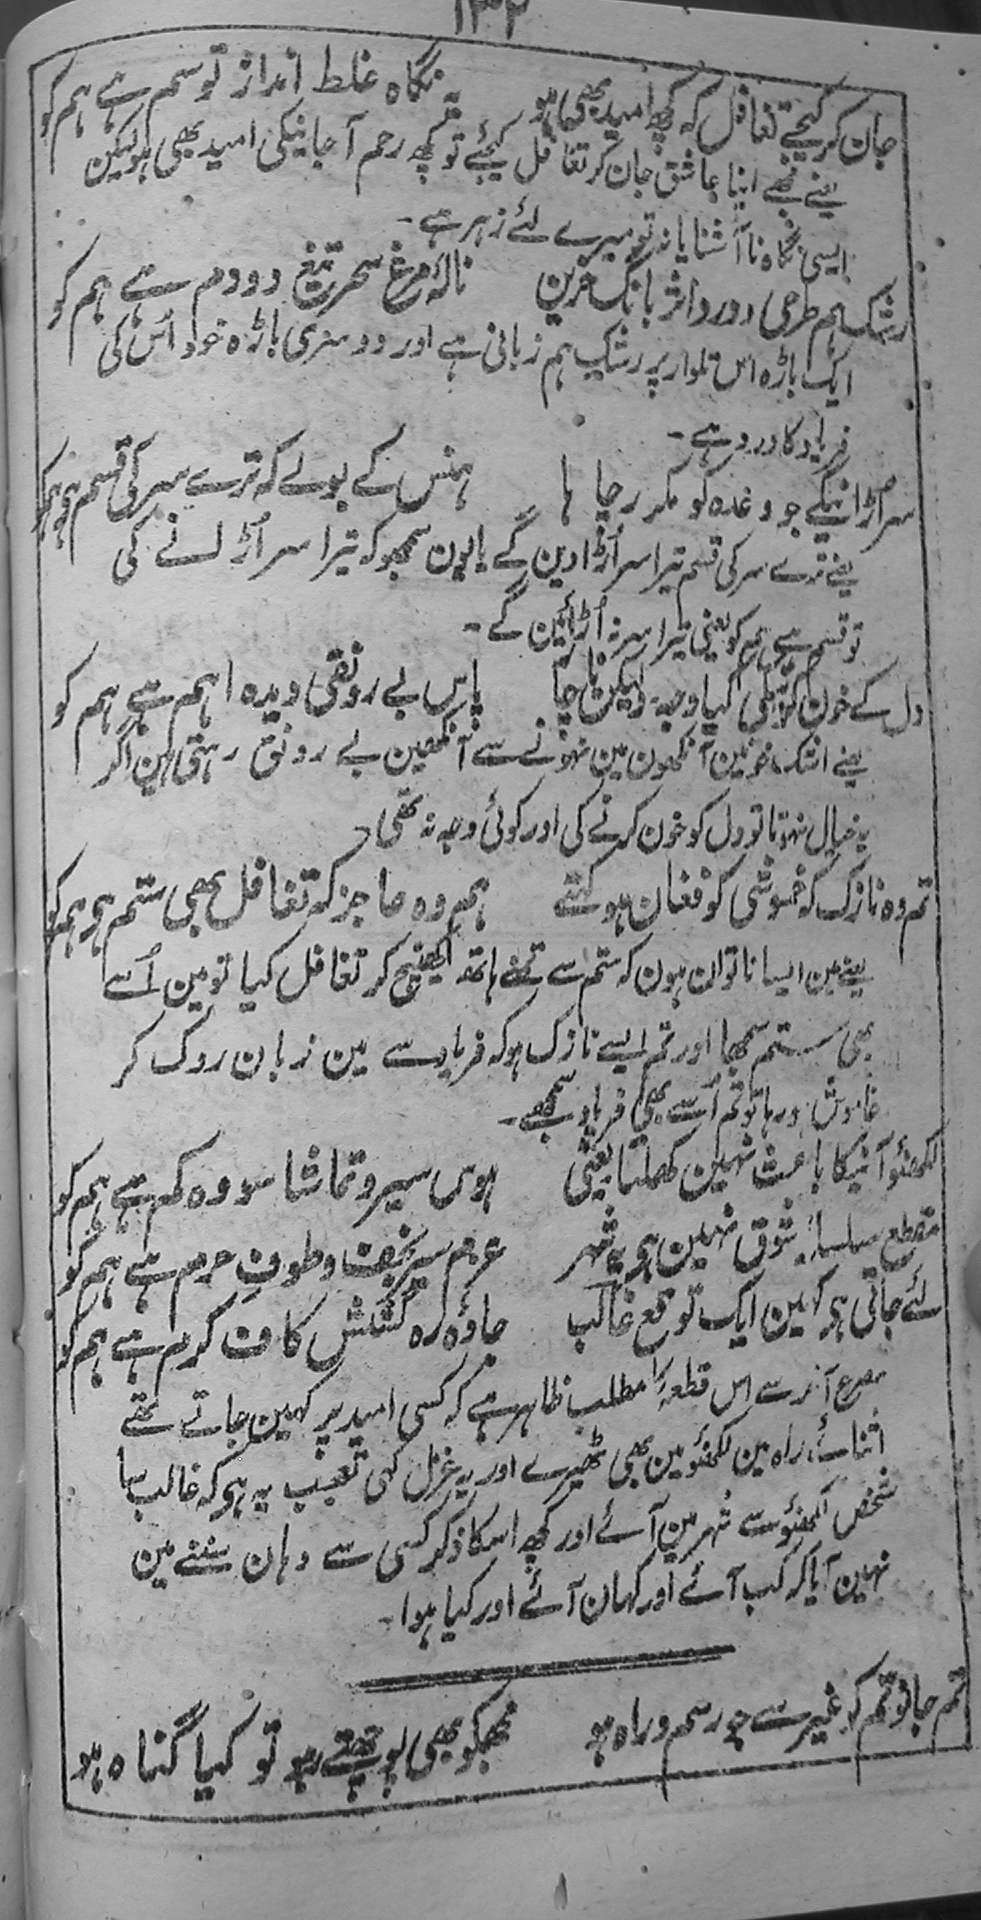 ۱۳۲
جان کر کیجے تغافل کہ کچھ امید بھی ہو نگاہ غلط انداز تو سم ہے ہم کو
یعنے مجھے اپنا عاشق جان کر تغافل کیجئے تو کچھ رحم آجانیکی امید بھی ہو لیکن
ایسی نگاہ ناآشنایانہ تو میرے لئے زہر ہے۔
رشک ہم طرحی و درد اثر بانگ حزین نالۂ مرغ سحر تیغ دو دم ہے ہم کو
ایک باڑہ اس تلوار پر رشک ہم زبانی ہے اور دوسری باڑہ خود اُس کی
فریاد کا درد ہے۔
سر اُڑانیکے جو وعدہ کو مکرر چاہا ہنس کے بولے کہ ترے سر کی قسم ہے ہمکو
یعنے ترے سر کی قسم تیرا سر اُڑا دین گے یا یون سمجھو کہ تیرا سر اُڑانے کی
تو قسم ہے ہم کو یعنی تیرا سر نہ اُڑائین گے۔
دل کے خون کرنیکی کیا وجہ ولیکن ناچار پاس بے رونقی دیدہ اہم ہے ہم کو
یعنے اشک خونین آنکھون مین نہونے سے آنکھین بے رونق رہتی ہین اگر
یہ خیال نہوتا تو دل کو خون کرنے کی اور کوئی وجہ نہ تھی۔
تم وہ نازک کہ خموشی کو فغان کہتے ہو ہم وہ عاجز کہ تغافل بھی ستم ہے ہمکو
یعنے مین ایسا ناتوان ہون کہ ستم سے تمنے ہاتھ کھینچ کر تغافل کیا تو مین اُسے
بھی ستم سمجھا اور تم ایسے نازک ہو کہ فریاد سے مین زبان روک کر
خاموش ہو رہا تو تم اُسے بھی فریاد سمجھے۔
لکھنؤ آنیکا باعث نہین کھلتا یعنی ہوس سیر و تماشا سو وہ کم ہے ہم کو
مقطع سلسلۂ شوق نہین ہے یہ شہر عزم سیر نجف و طوف حرم ہے ہم کو
لئے جاتی ہے کہین ایک توقع غالب جادۂ رہ کشش کاف کرم ہے ہم کو
مصرع آخر سے اس قطعہ کا مطلب ظاہر ہے کہ کسی امید پر کہین جاتے تھے
اثنائے راہ مین لکھنؤ مین بھی ٹھیرے اور یہ غزل کہی تعجب یہ ہے کہ غالب سا
شخص لکھنؤ سے شہر مین آئے اور کچھ اسکا ذکر کسی سے وہان سننے مین
نہین آیا کہ کب آئے اور کہان آئے اور کیا ہوا۔
تم جانو تم کو غیر سے جو رسم و راہ ہو مجھکو بھی پوچھتے رہو تو کیا گناہ ہو